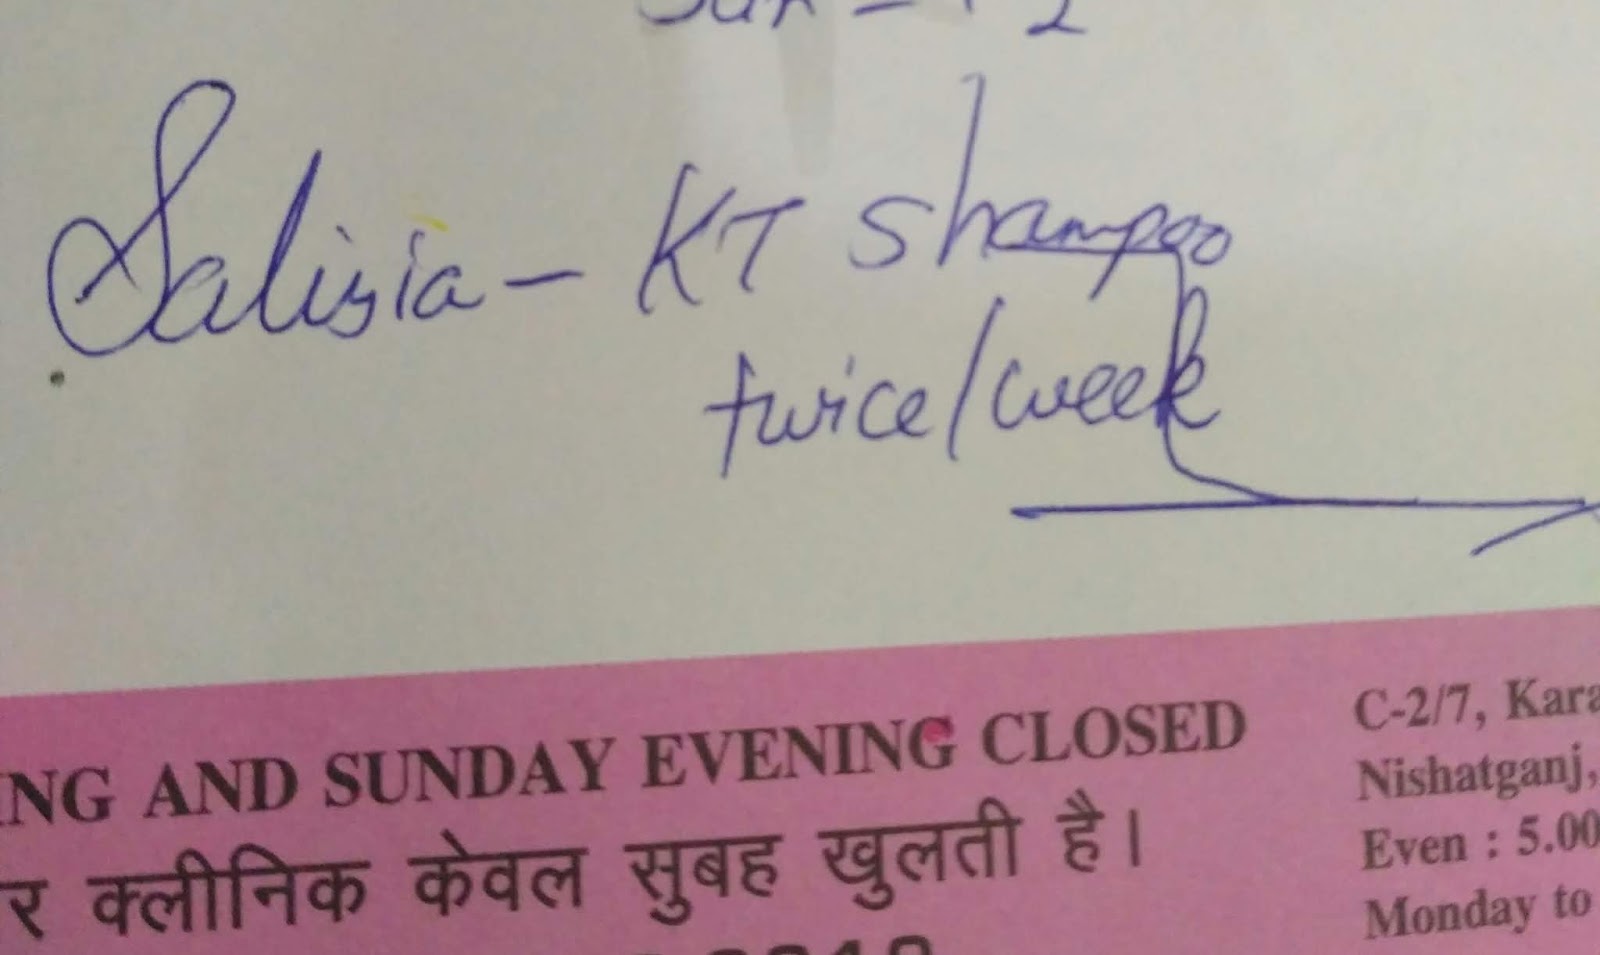 Salisia - KT Shampoo
twice/week
NG AND SUNDAY EVENING CLOSED
र क्लीनिक केवल सुबह खुलती है।
C-2/7, Kara
Nishatganj,
Even : 5.00
Monday to